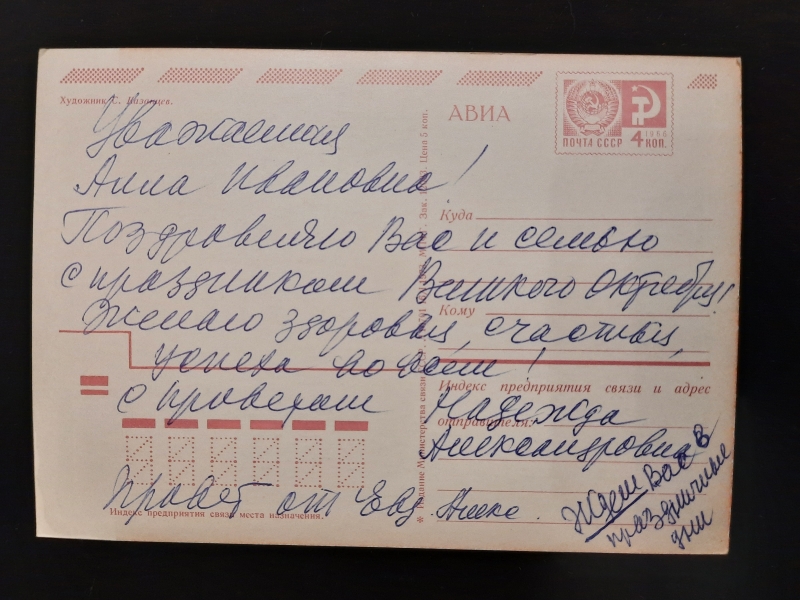 Художник С.
АВИА
1966
ПОЧТА СССР 4 КОП.
Уважаемая
Анна Ивановна!
Поздровляю Вас и семью
с праздником Великого Октября!
Желаю здоровья, счастья,
успеха во всем!
с приветам Надежда
Александровна
Привет от Евг Алекс.
Ждем Вас в
праздничные
дни
Куда
Кому
Индекс предприятия связи и адрес
отправителя:
Индекс предприятия связи места назначения.
Издание Министерства связи
Цена 5 коп.